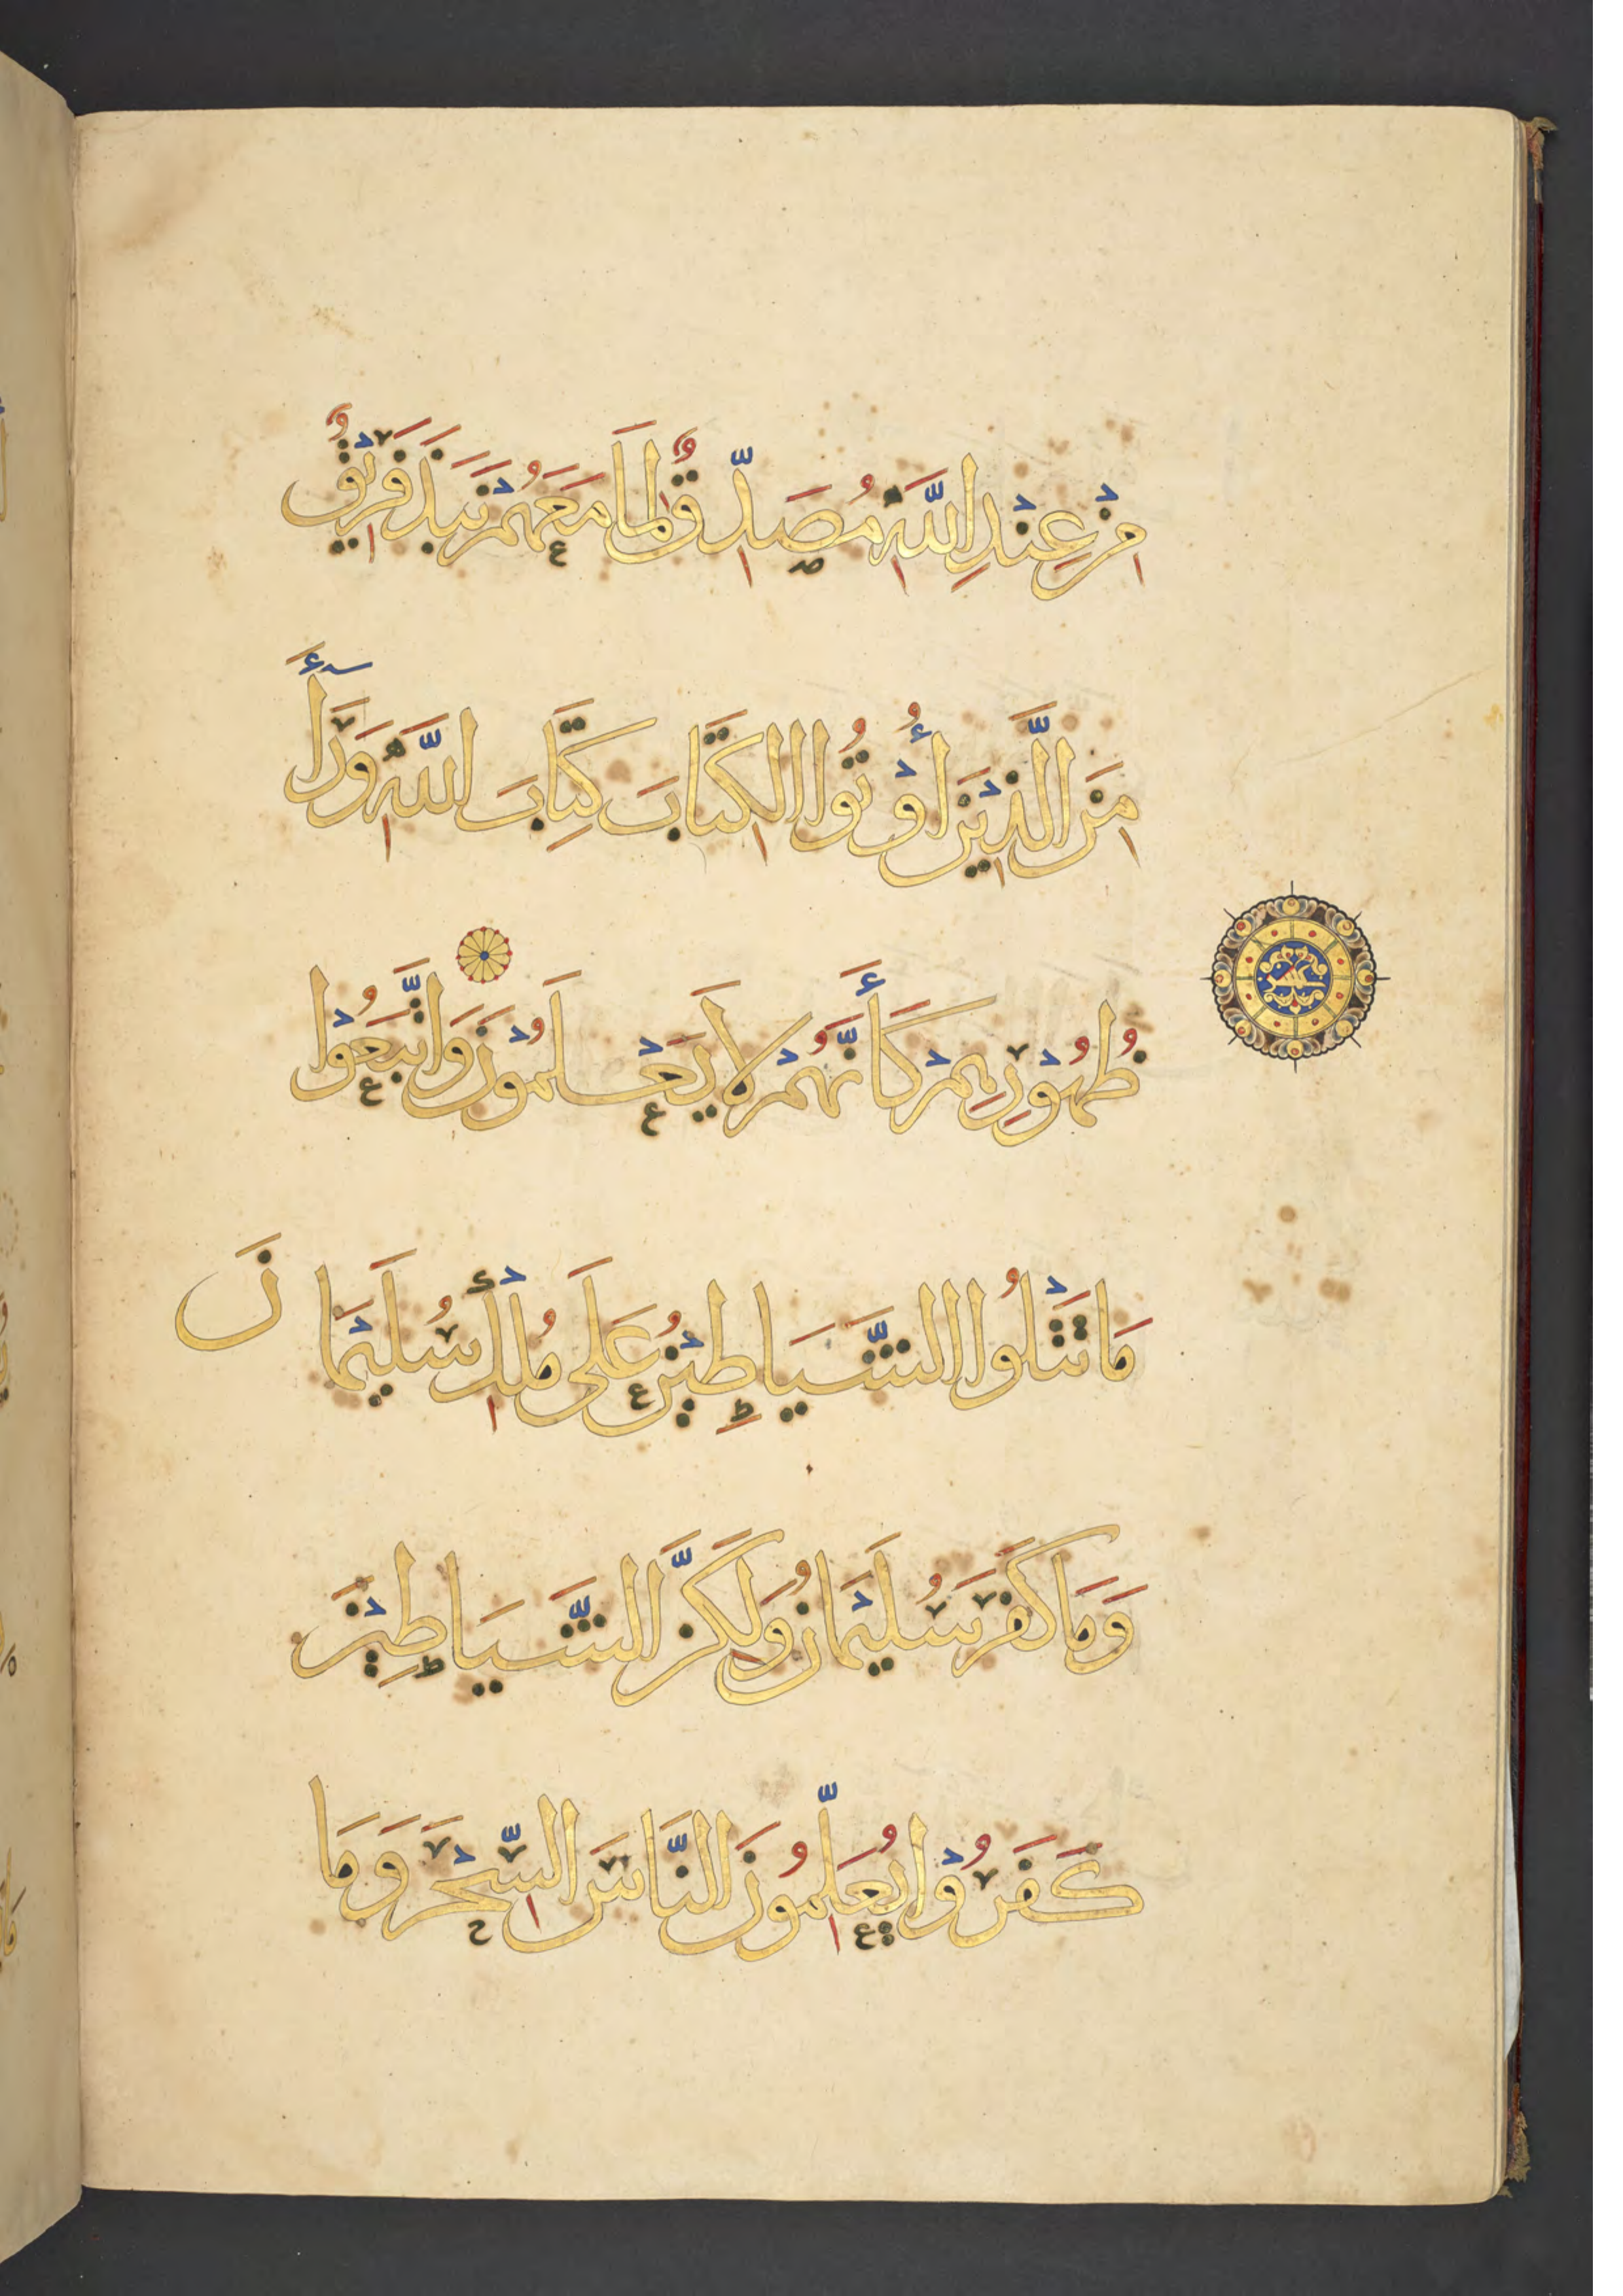 مِنْ عِنْدِ اللَّهِ مُصَدِّقٌ لِمَا مَعَهُمْ نَبَذَ فَرِيْقٌ
مِنَ الَّذِيْنَ أُوْتُوا الْكِتَابَ كِتَابَ اللَّهِ وَرَآءَ
ظُهُوْرِهِمْ كَأَنَّهُمْ لَا يَعْلَمُوْنَ وَاتَّبَعُوْا
مَا تَتْلُوا الشَّيَاطِيْنُ عَلَى مُلْكِ سُلَيْمَانَ
وَمَا كَفَرَ سُلَيْمَانُ وَلَكِنَّ الشَّيَاطِيْنَ
كَفَرُوْا يُعَلِّمُونَ النَّاسَ السِّحْرَ وَمَا